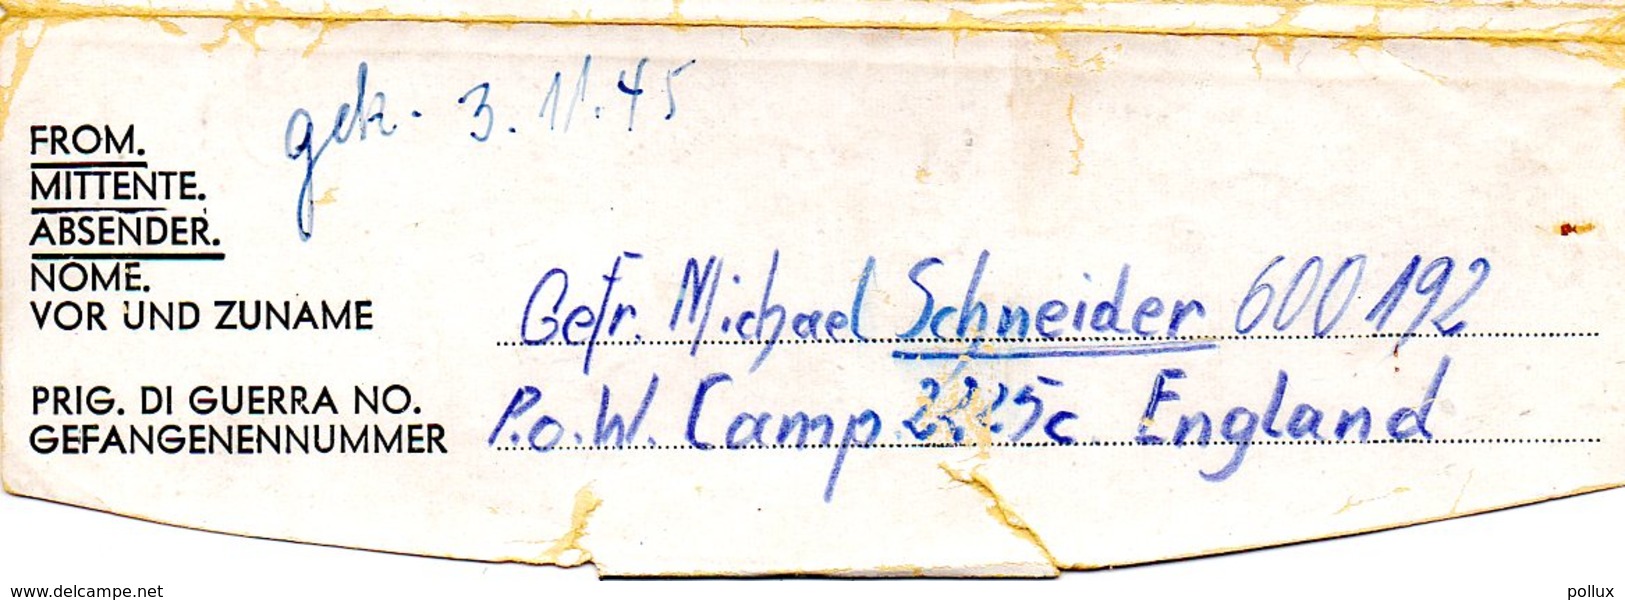 gek. 3. 11. 45
FROM.
MITTENTE.
ABSENDER.
NOME.
VOR UND ZUNAME
Gefr. Michael Schneider 600192
PRIG. DI GUERRA NO.
GEFANGENENNUMMER
P.o.W. Camp England
delcampe.net
pollux